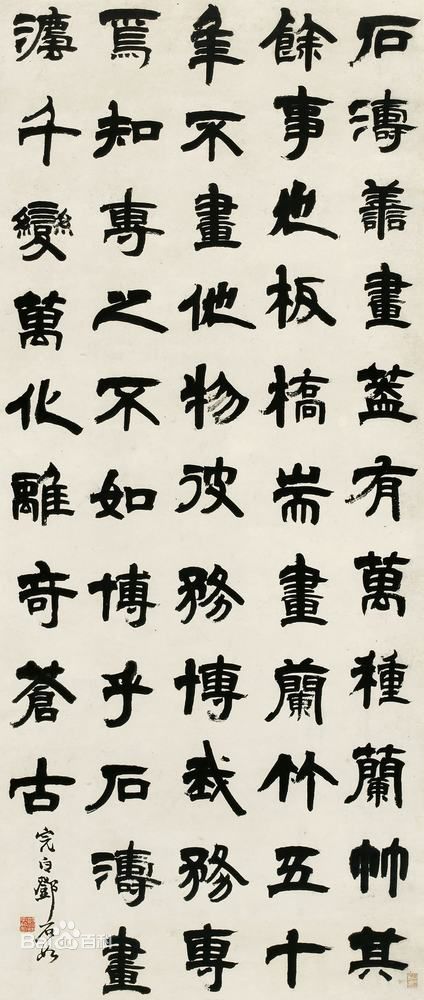 石濤善畫蓋有萬種蘭竹其
餘事也板橋耑畫蘭竹五十
年不畫他物彼務博我務專
焉知專之不如博乎石濤畫
灋千變萬化離奇蒼古
完白鄧石如
Bai 百科